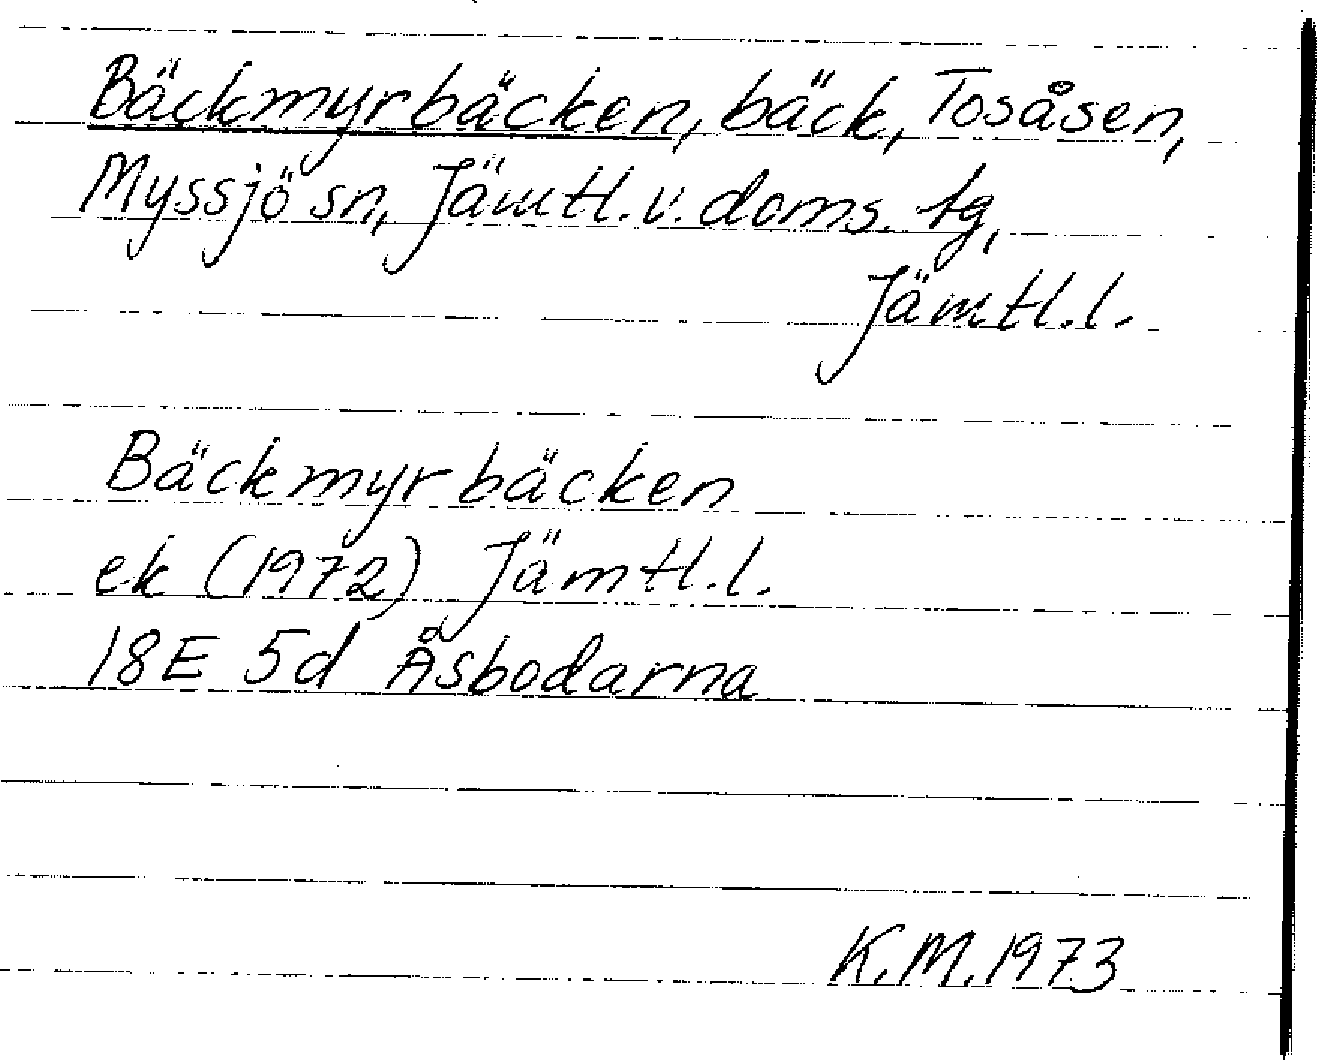 Bäckmyrbäcken, bäck, Tosåsen,
Myssjö sn, Jämtl. v. doms. tg,
Jämtl.l.
Bäckmyrbäcken
ek (1972) Jämtl.l.
18E 5d Åsbodarna
K.M.1973